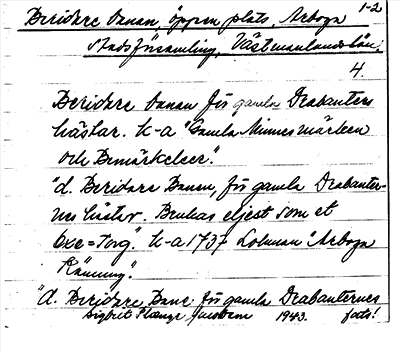 1-2
Beridare banan, öppen plats, Arboga
stadsförsamling, Västmanlands län.
4.
Beridare banan för gamla Drabanters
hästar. K-a "Gamla Minnesmärken
och Bemärkelser".
"d. Beridare Banan, för gamla Drabanter-
nes hästar. Brukas eljest som et
Oxe=Torg." K-a 1737 Lohman "Arboga
Känning".
"d. Beridare Bane för gamla Drabanternes
Sigbrit Plange 1943. forts!